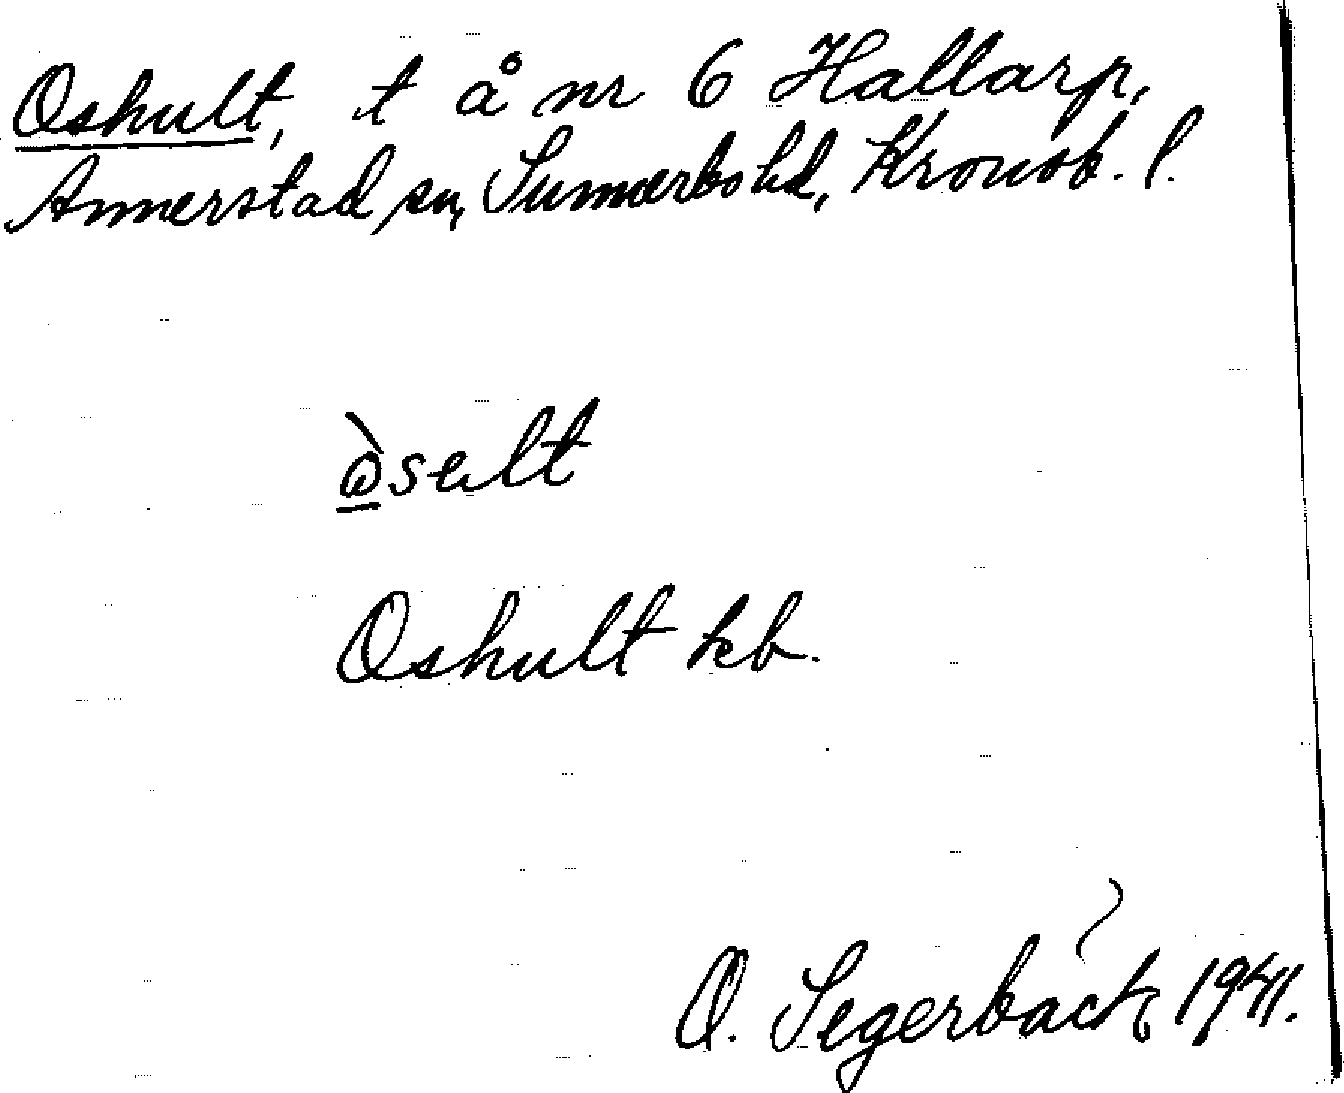 Oshult, t å nr 6 Hallarp,
Annerstad sn, Sunnerbo hd, Kronob. l.
òselt
Oshult kb.
O. Segerbäck 1941.